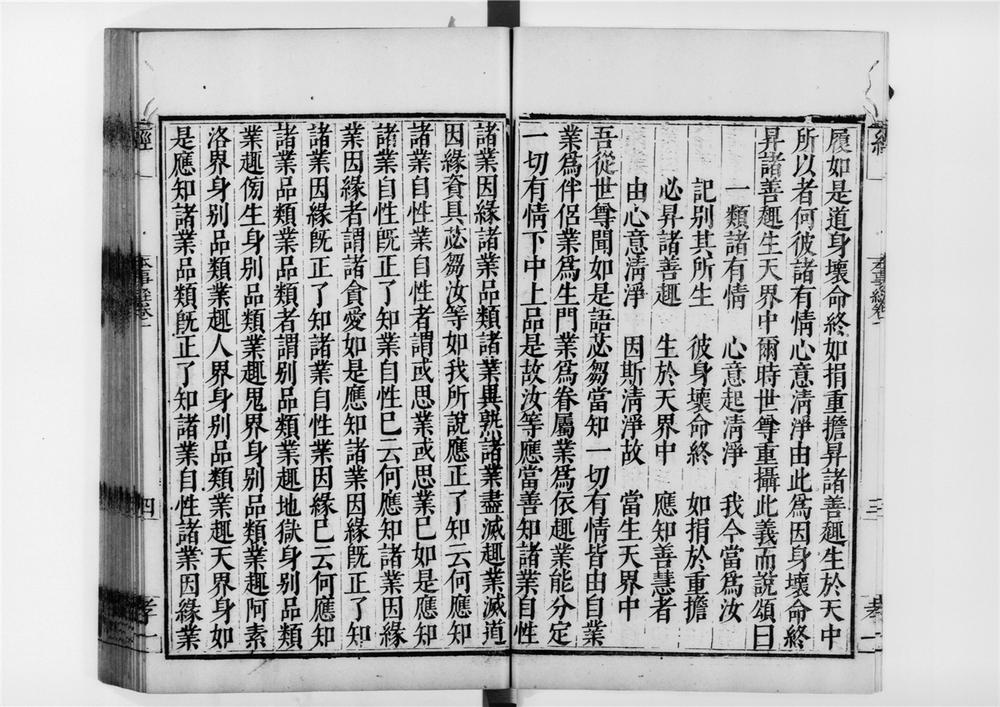 履如是道身壞命終如捐重擔昇諸善趣生於天中
所以者何彼諸有情心意清淨由此爲因身壞命終
昇諸善趣生天界中爾時世尊重攝此義而說頌曰
一類諸有情 心意起清淨 我今當爲汝
記別其所生 彼身壞命終 如捐於重擔
必昇諸善趣 生於天界中 應知善慧者
由心意清淨 因斯清淨故 當生天界中
吾從世尊聞如是語苾芻當知一切有情皆由自業
業爲伴侶業爲生門業爲眷屬業爲依趣業能分定
一切有情下中上品是故汝等應當善知諸業自性
諸業因緣諸業品類諸業異熟諸業盡滅趣業滅道
因緣資具苾芻汝等如我所說應正了知云何應知
諸業自性業自性者謂或思業或思業已如是應知
諸業自性旣正了知業自性已云何應知諸業因緣
業因緣者謂諸貪愛如是應知諸業因緣旣正了知
諸業因緣旣正了知諸業自性業因緣已云何應知
諸業品類業品類者謂別品類業趣地獄身別品類
業趣傍生身別品類業趣鬼界身別品類業趣阿素
洛界身別品類業趣人界身別品類業趣天界身如
是應知諸業品類旣正了知諸業自性諸業因緣業
經 本事經卷一 四 孝一